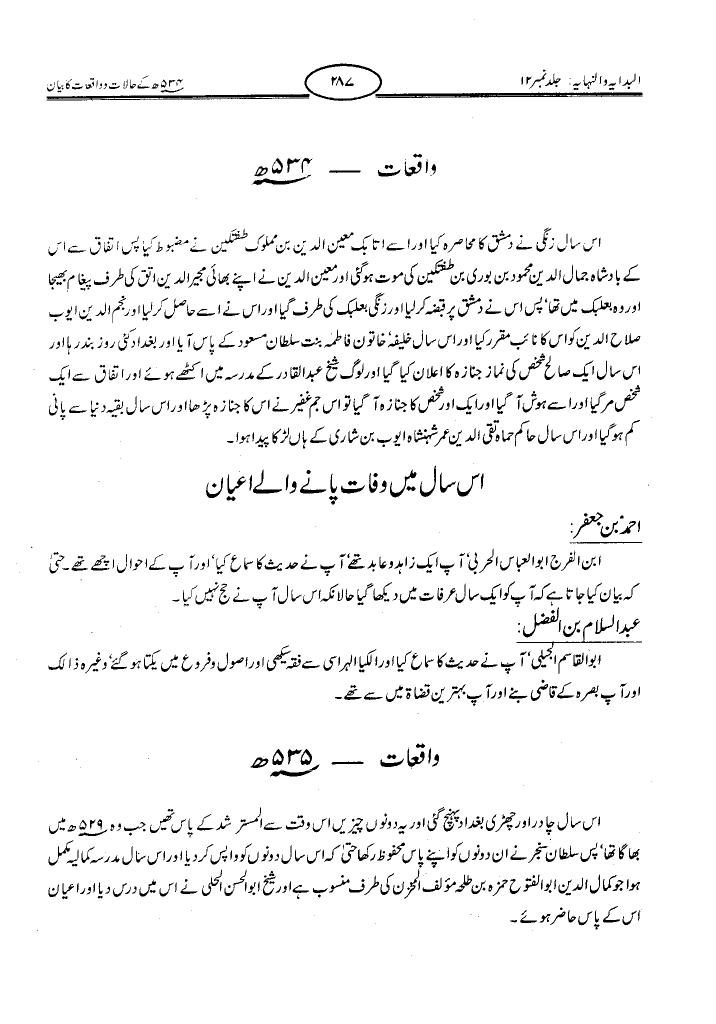 البدایہ والنہایہ: جلد نمبر ۱۲
۲۸۷
۵۳۴ھ کے حالات و واقعات کا بیان
واقعات — ۵۳۴ھ
اس سال زنگی نے دمشق کا محاصرہ کیا اور اسے اتابک معین الدین بن مملوک طغتکین نے مضبوط کیا پس اتفاق سے اس
کے بادشاہ جمال الدین محمود بن بوری بن طغتکین کی موت ہوگئی اور معین الدین نے اپنے بھائی مجیر الدین اتق کی طرف پیغام بھیجا
اور وہ بعلبک میں تھا' پس اس نے دمشق پر قبضہ کر لیا اور زنگی بعلبک کی طرف گیا اور اس نے اسے حاصل کر لیا اور نجم الدین ایوب
صلاح الدین کو اس کا نائب مقرر کیا اور اس سال خلیفہ' خاتون فاطمہ بنت سلطان مسعود کے پاس آیا اور بغداد کئی روز بند رہا اور
اس سال ایک صالح شخص کی نماز جنازہ کا اعلان کیا گیا اور لوگ شیخ عبدالقادر کے مدرسہ میں اکٹھے ہوئے اور اتفاق سے ایک
شخص مر گیا اور اسے ہوش آ گیا اور ایک اور شخص کا جنازہ آ گیا تو اس جم غفیر نے اس کا جنازہ پڑھا اور اس سال بقیہ دنیا سے پانی
کم ہو گیا اور اس سال حاکم حماہ تقی الدین عمر شہنشاہ ایوب بن شاری کے ہاں لڑکا پیدا ہوا۔
اس سال میں وفات پانے والے اعیان
احمد بن جعفر:
ابن الفرج ابوالعباس الحربی' آپ ایک زاہد و عابد تھے' آپ نے حدیث کا سماع کیا' اور آپ کے احوال اچھے تھے۔ حتیٰ
کہ بیان کیا جاتا ہے کہ آپ کو ایک سال عرفات میں دیکھا گیا حالانکہ اس سال آپ نے حج نہیں کیا۔
عبدالسلام بن الفضل:
ابوالقاسم الجیلی' آپ نے حدیث کا سماع کیا اور الکیا الہراسی سے فقہ سیکھی اور اصول و فروع میں یکتا ہو گئے' وغیرہ ذالک
اور آپ بصرہ کے قاضی بنے اور آپ بہترین قضاۃ میں سے تھے۔
واقعات — ۵۳۵ھ
اس سال چادر اور چھڑی بغداد پہنچ گئی اور یہ دونوں چیزیں اس وقت سے المسترشد کے پاس تھیں جب وہ ۵۲۹ھ میں
بھاگا تھا' پس سلطان سنجر نے ان دونوں کو اپنے پاس محفوظ رکھا حتیٰ کہ اس سال دونوں کو واپس کر دیا اور اس سال مدرسہ کمالیہ مکمل
ہوا جو کمال الدین ابوالفتوح حمزہ بن طلحہ مؤلف المخزن کی طرف منسوب ہے اور شیخ ابوالحسن الحلی نے اس میں درس دیا اور اعیان
اس کے پاس حاضر ہوئے۔